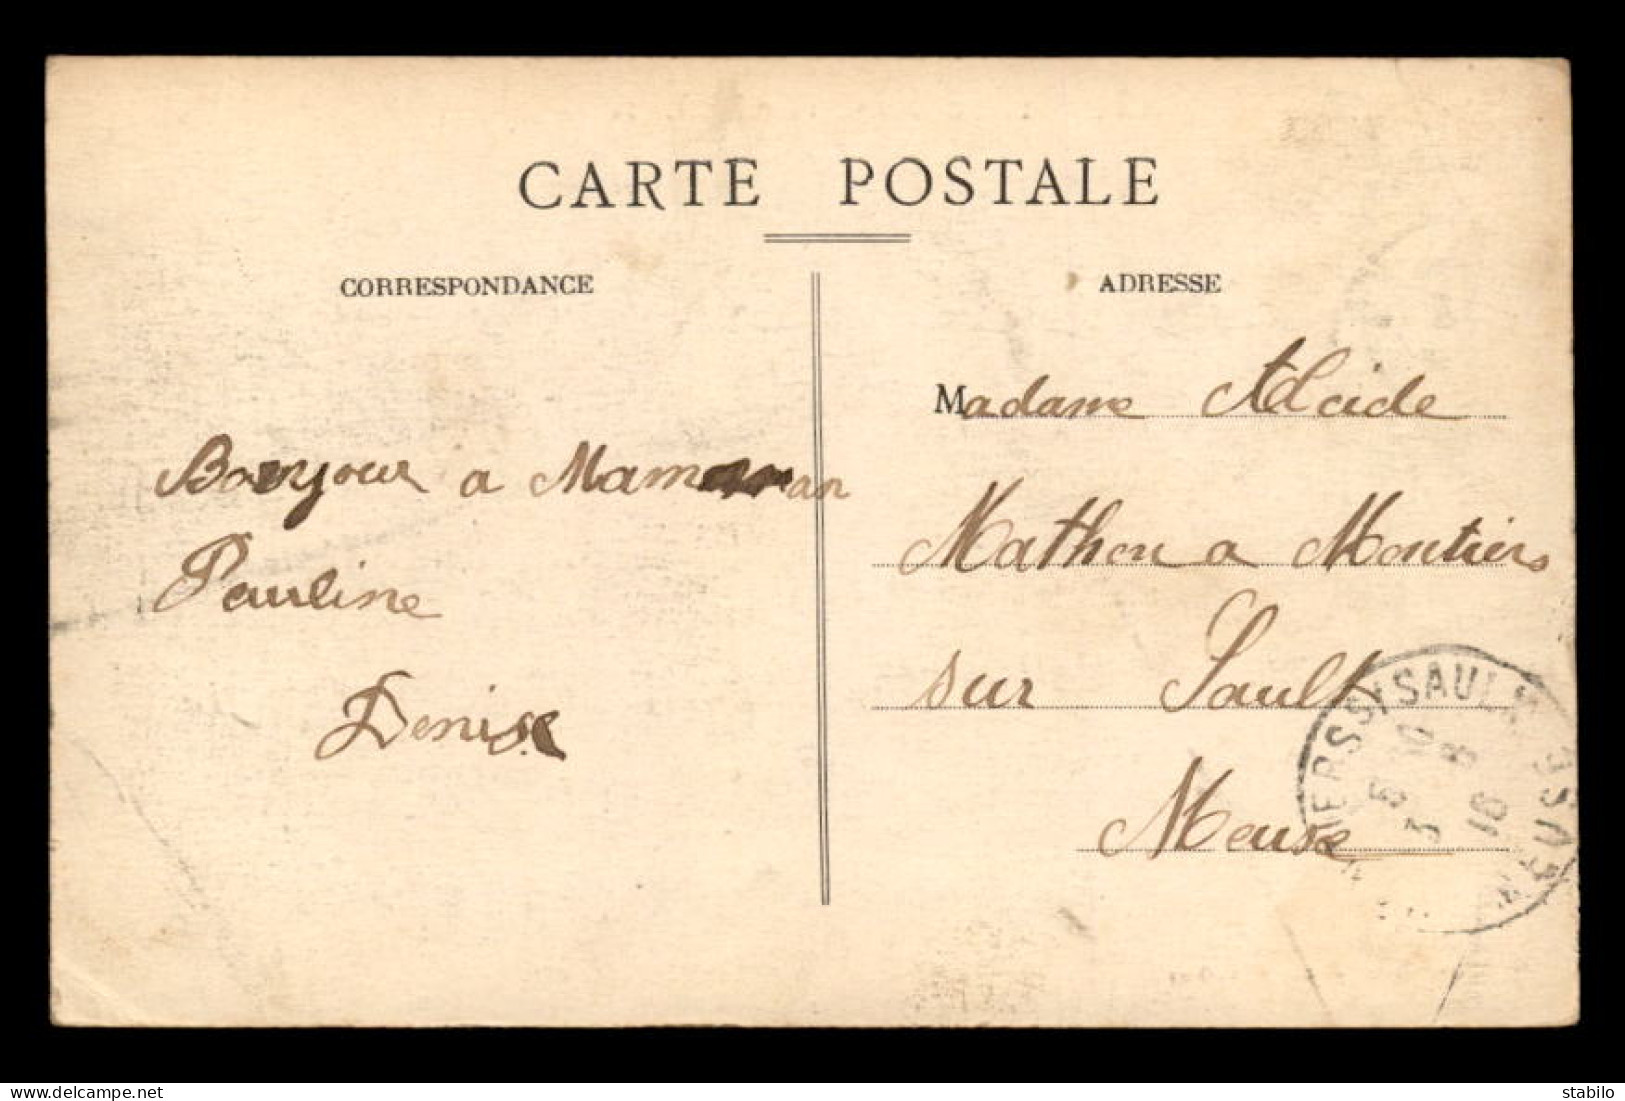 CARTE POSTALE
CORRESPONDANCE
Bonjour a Maman
Pauline
Denise
ADRESSE
Madame Alcide
Mathon a Montiers
sur Sault
Meuse
IERS S/ SAULX
10
5 8
3 16
MEUSE
Delcampe.net
stabilo